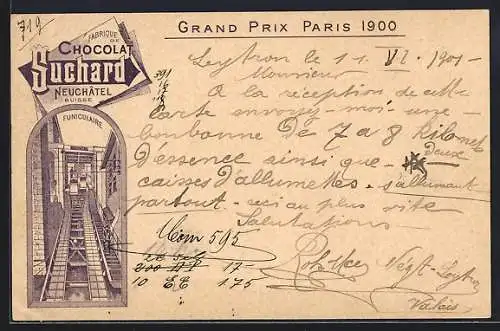 719
GRAND PRIX PARIS 1900
FABRIQUE DE
CHOCOLAT
Suchard
NEUCHÂTEL
SUISSE
FUNICULAIRE
Leytron le 11 VI. 1901
Monsieur
A la réception de cette
carte envoyez-moi une
bonbonne De 7 a 8 kilones
D'essence ainsi que Deux
caisses d'allumettes s'allumant
partout ceci au plus vite
Salutations
Com 595
17
10 175
Négt. Leytron
Valais